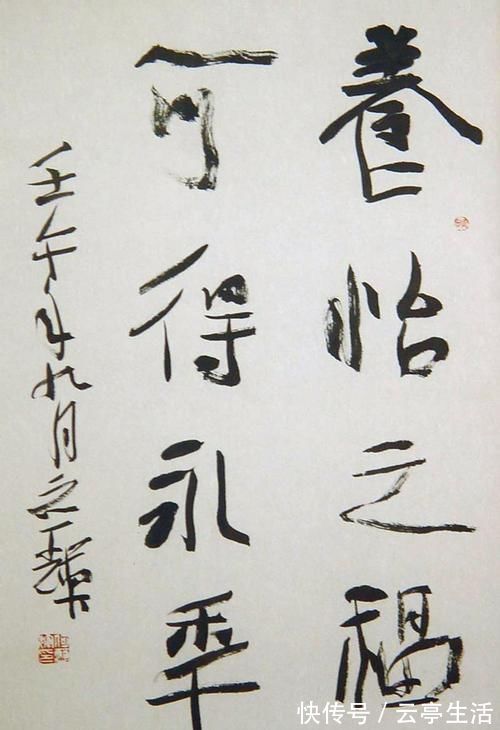 养怡之福
可得永年
壬午年九月之
快传号/云亭生活